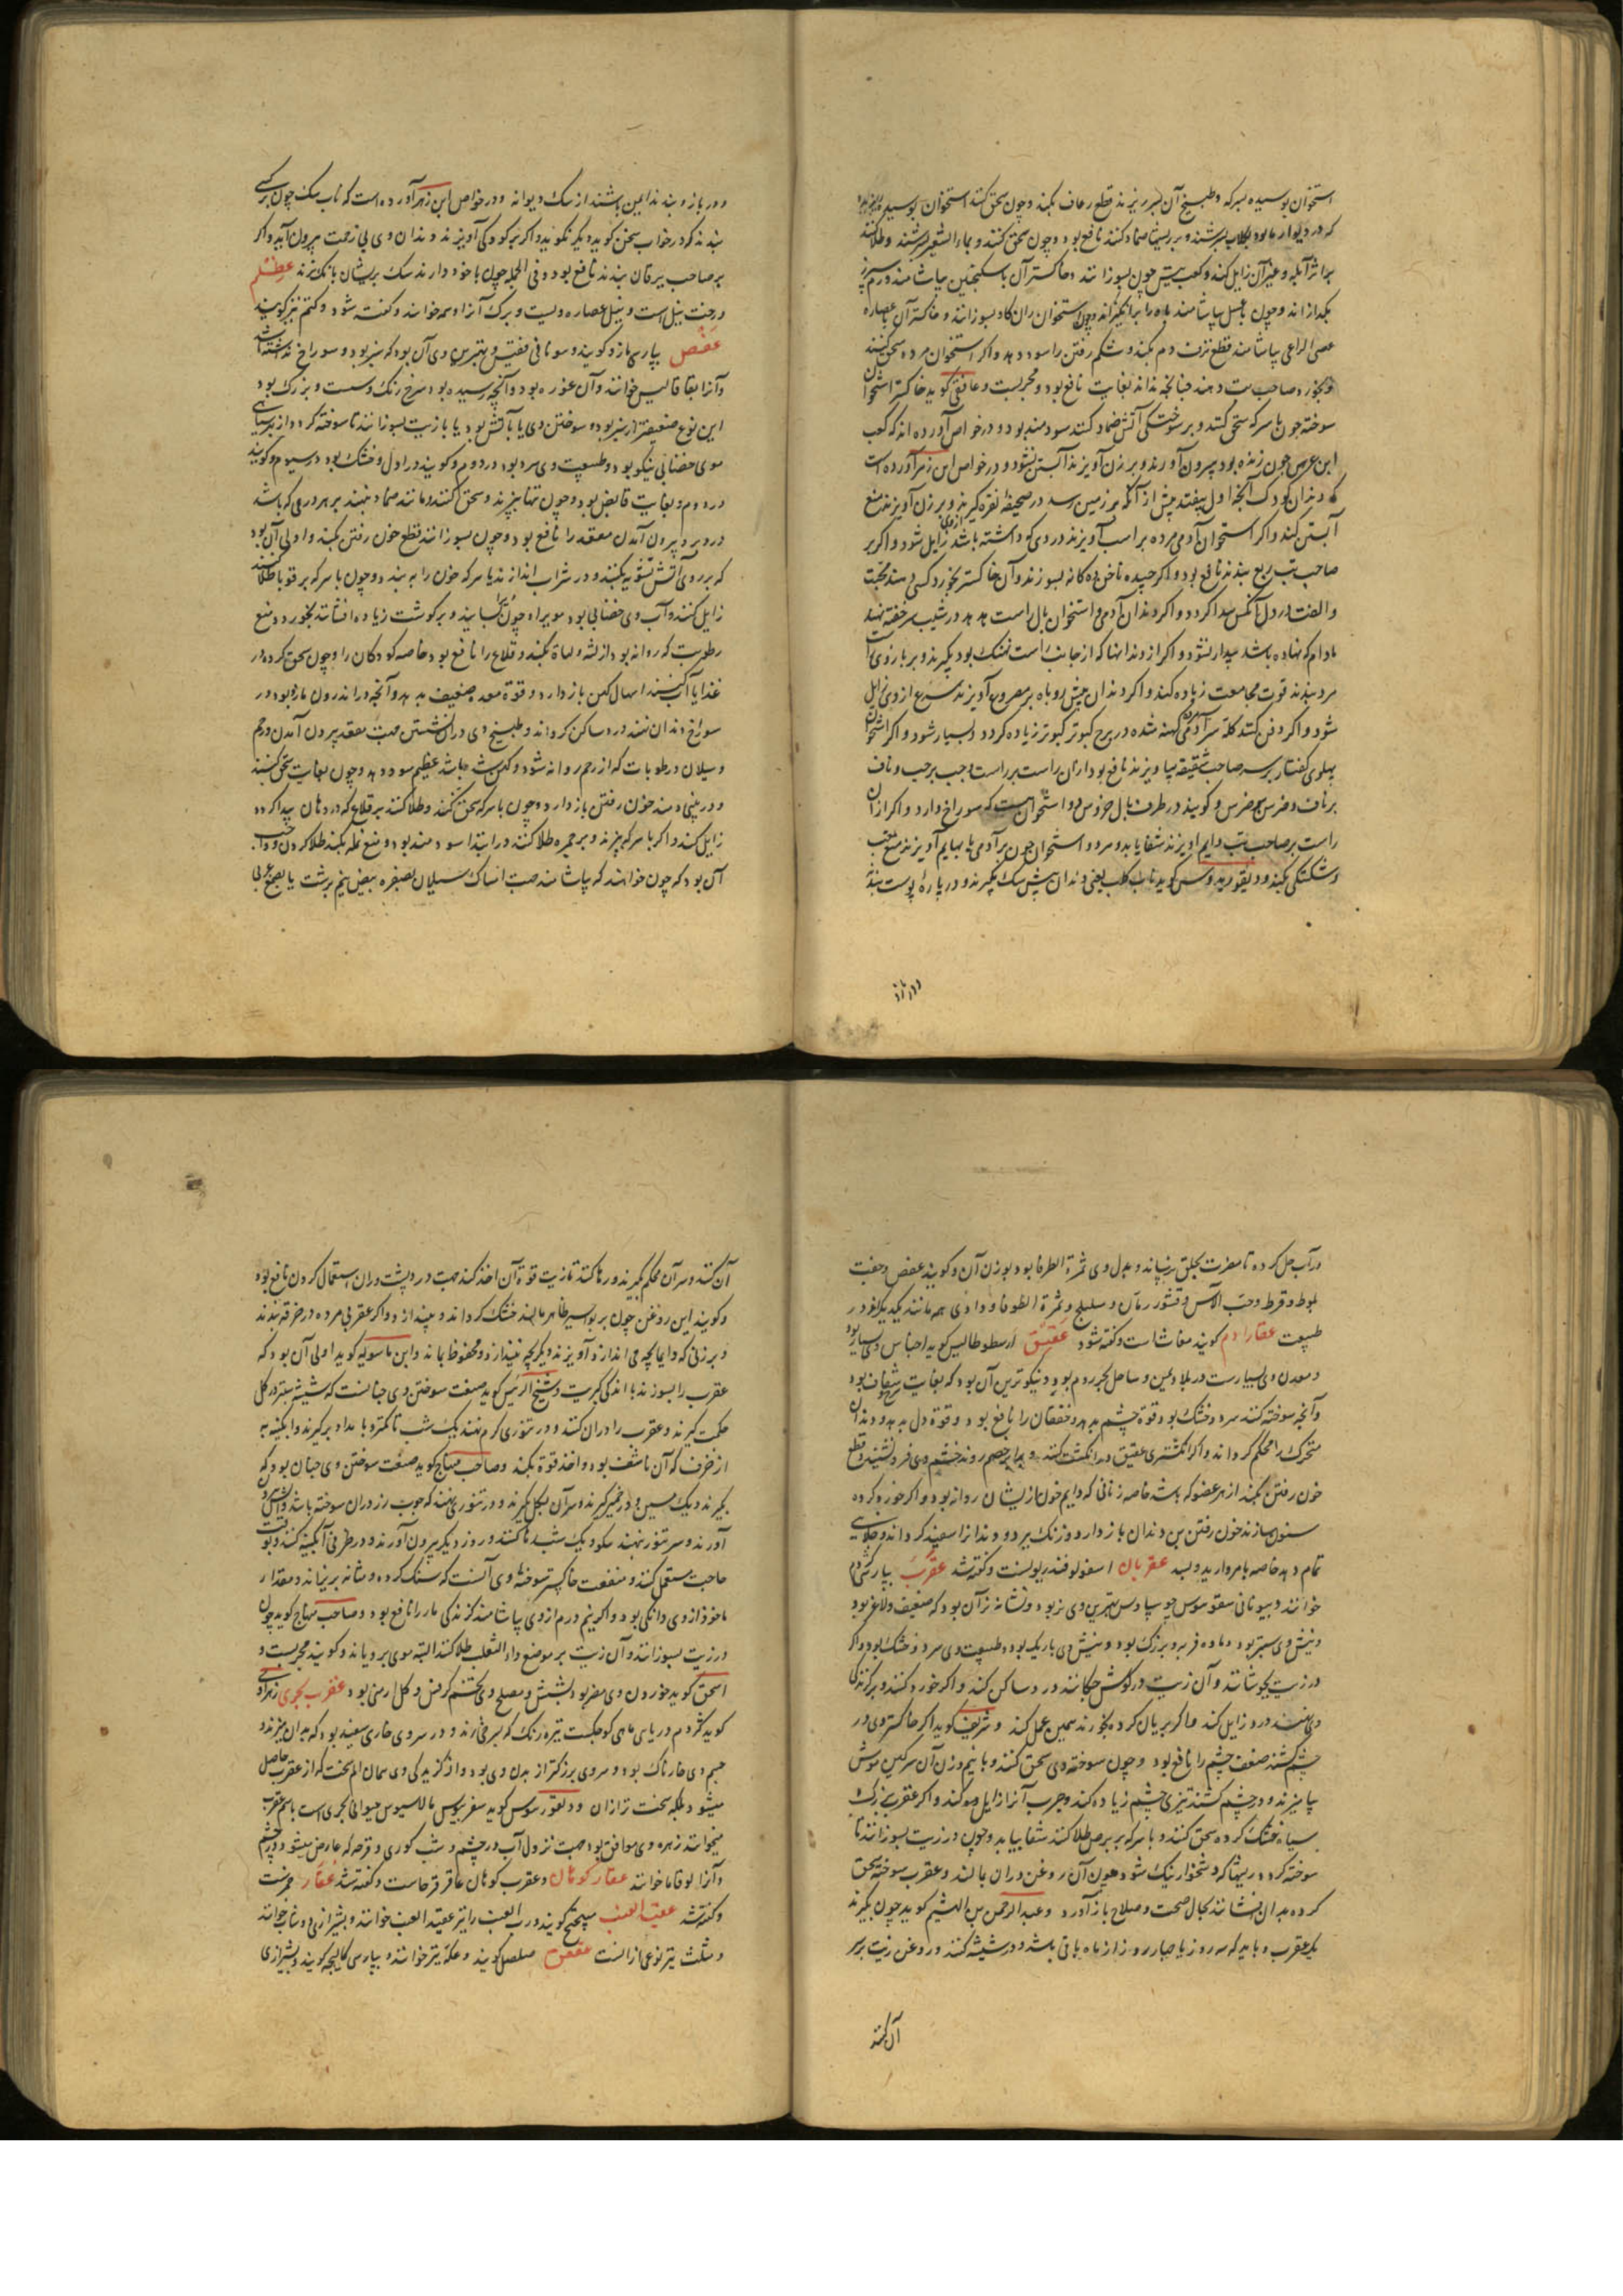 استخوان بوسیده بسرکه و طبیخ آن بر سر ریزند قطع رعاف بکند و چون سحق کنند استخوان بوسیده
که در دیوارها بود بگلاب بسرشند و بر ریشها ضماد کنند نافع بود و چون سحق کنند و بماء الشعیر بسرشند و طلا کنند
بر اثر آبله و غیر آن زایل کند و کعب تیس چون بسوزانند و خاکستر آن با سکنجبین بیاشامند ورم سپرز
بگدازاند و چون با عسل بیاشامند باه را برانگیزاند و چون استخوان ران کاو بسوزانند و خاکستر آن بعصاره
عصی الراعی بیاشامند قطع نزف دم بکند و شکم رفتن را سود دهد و اکر استخوان مرده سحق کنند
و بخورد صاحب تب دهند چنانچه نداند بغایت نافع بود و مجربست و غافقی کوید خاکستر استخوان
سوخته چون با سرکه سحق کنند و بر سوختگی آتش ضماد کنند سودمند بود و در خواص آورده اند که کعب
ابن عرس چون زنده بود بیرون آورند و بر زن آویزند آبستن نشود و در خواص ابن زهر آورده است
که دندان کودک آنچه اول بیفتد پیش از آنکه بر زمین رسد در صحیفه نقره گیرند و بر زن آویزند منع
آبستنی کند و اکر استخوان آدمی مرده بر اسب آویزند در وی که داشته باشد زایل شود و اکر بر
صاحب تب ربع بندند نافع بود و اکر چیده ناخن ده کانه بسوزند و آن خاکستر بخورد کسی دهند محبت
و الفت در دل آنکس پیدا کردد و اکر دندان آدمی و استخوان بال راست هدهد در شیب سر خفته نهند
مادام که نهاده باشد بیدار نشود و اکر از دندانها که از جانب راست نهنک بود بگیرند و بر بازوی راست
مرد بندند قوت مجامعت زیاده کند و اکر دندان پیش روباه بر مصروع آویزند صرع از وی زایل
شود و اکر دفن کنند کله سر آدمی کهنه شده در برج کبوتر کبوتر زیاده کردد و بسیار شود و اکر استخوان
پهلوی کفتار بر سر صاحب شقیقه بیاویزند نافع بود از آن راست بر راست و چپ بر چپ و ناف
بر ناف و ضرس بر ضرس و کویند در طرف بال خروس دو استخوان است که سوراخ دارد و اکر از آن
راست بر صاحب تب دایم آویزند شفا یابد و هر دو استخوان چون بر آدمی یا بهایم آویزند منع تعب
و شکستگی بکند و دیقوریدوس کوید ناب کلب یعنی دندان پیش سک بگیرند و در پاره پوست بندند
و در بازو
و در بازو بندند ایمن باشند از سک دیوانه و در خواص ابن زهر آورده است که ناب سک چون بر کسی
بندند که در خواب سخن کوید دیکر نکوید و اکر بر کودکی آویزند دندان وی بی زحمت بیرون آید و اکر
بر صاحب یرقان بندند نافع بود و فی الجمله چون با خود دارند سک بریشان بانک نزند عظلم
درخت نیل است و نیل عصاره ویست و برک آنرا وسمه خوانند و گفته شود و کتم نیز کویند
عفص بپارسی مازو کویند و یونانی قفقیس و بهترین وی آن بود که سبز بود و سوراخ نداشته باشد
و آنرا بقاقالیس خوانند و آن غوره بود و آنچه رسیده بود سرخ رنک و سست و بزرک بود
این نوع ضعیفتر از سبز بود و سوختن وی یا بآتش بود یا بازیت بسوزانند تا سوخته کردد از بهر سیاهی
موی خضابی نیکو بود و طبیعت وی سرد بود در دوم و کویند در اول و خشک بود در سیوم و کویند
در دوم و بغایت قابض بود و چون تنها بپزند و سحق کنند و مانند ضماد بنهند بر هر ورمی که باشد
در دبر و بیرون آمدن مقعد را نافع بود و چون بسوزانند قطع خون رفتن بکند و اولی آن بود
که بر روی آتش تشویه کنند و در شراب اندازند یا سرکه خون را به بندد و چون با سرکه بر قوبا طلا کنند
زایل کند و آب وی خضابی بود مویرا و چون بسایند و بر گوشت زیاده افشانند بخورد و منع
رطوبت که روانه بود از لثه و لهاة بکند و قلاع را نافع بود خاصه کودکان را و چون سحق کرده در
غذا یا آب کنند اسهال کهن باز دارد و قوة معده ضعیف بدهد و آنچه در اندرون مازو بود در
سوراخ دندان نهند درد ساکن کرداند و طبیخ وی در آن نشستن جهت مقعد بیرون آمدن و رحم
و سیلان رطوبات که از رحم روانه شود و کهن شده باشد عظیم سود دهد و چون بغایت سحق کنند
و در بینی دمند خون رفتن باز دارد و چون با سرکه سحق کنند و طلا کنند بر قلاع که در دهان پیدا کردد
زایل کند و اکر با سرکه بپزند و بر حمره طلا کنند در ابتدا سودمند بود و منع نمله بکند طلا کردن و واجب
آن بود که چون خواهند که بیاشامند جهت امساک سیلان بصفره بیض نیم برشت یا بصمغ عربی
در آب حل کرده تا مضرت بحلق نرساند و بدل وی ثمرة الطرفا بود بوزن آن و کویند عفص و جفت
بلوط و قرط و حب الآس و قشور رمان و هلیلج و ثمرة الطرفا و داذی همه مانند یکدیکرند در
طبیعت عقار ادم کویند مغاث است و گفته شود عقیق ارسطوطالیس کوید اجناس وی بسیار بود
و معدن وی بسیارست در بلاد یمن و ساحل بحر روم بود و نیکوترین آن بود که بغایت سرخ و شفاف بود
و آنچه سوخته کنند سرد و خشک بود قوة چشم بدهد و خفقان را نافع بود و قوة دل بدهد و دندان
متحرک را محکم کرداند و اکر انگشتری عقیق در انگشت کنند و برابر خصم روند خشم وی فرو نشیند و قطع
خون رفتن بکند از هر عضو که باشد خاصه زنانی که دایم خون ازیشان روانه بود و اکر خرد کرده
سنون سازند خون رفتن بن دندان باز دارد و زنک ببرد و دندانرا سفید کرداند و جلای
تمام دهد خاصه با مروارید و لبد عقربان اسقولوقندریونست و گفته شد عقرب بپارسی کژدم
خوانند و بیونانی سقوسوس چرسیادس بهترین وی نر بود و نشانه نر آن بود که ضعیف و لاغر بود
و نیش وی سطبر بود و ماده فربه و بزرک بود و نیش وی باریک بود و طبیعت وی سرد و خشک بود و اکر
در زیت بجوشانند و آن زیت در گوش چکانند درد ساکن کند و اکر خورد کنند و بر گزندگی
وی نهند درد زایل کند و اکر بریان کرده بخورند همین عمل کند و شریف کوید اکر خاکستر وی در
چشم کشند ضعف چشم را نافع بود و چون سوخته وی سحق کنند و با نیم وزن آن سرکین موش
بیامیزند و در چشم کشند تیزی چشم زیاده کند و جرب آنرا زایل کند و اکر عقربی بزرک
سیاه خشک کرده سحق کنند و با سرکه بر برص طلا کنند شفا یابد و چون در زیت بسوزانند تا
سوخته کردد ریشها که دشخوار نیک شود چون آن روغن در آن مالند و عقرب سوخته سحق
کرده بدان افشانند بحال صحت و صلاح باز آورد و عبدالرحمن بن الهیثم کوید چون بگیرند
یک عقرب و باید که سه روز یا چهار روز از ماه باقی باشد و در شیشه کنند و روغن زیت بر سر
آن کنند
آن کنند و سر آن محکم بگیرند و رها کنند تا زیت قوة آن اخذ کند جهت درد پشت و ران استعمال کردن نافع بود
و کویند این روغن چون بر بواسیر ظاهر مالند خشک کرداند و بیندازد و اکر عقربی مرده در خرقه بندند
و بر زنی که دایما بچه می اندازد آویزند دیکر بچه نیندازد و محفوظ بماند و ابن ماسویه کوید اولی آن بود که
عقرب را بسوزند با اندکی کبریت و شیخ الرئیس کوید صنعت سوختن وی چنانست که شیشه سطبر در کل
حکمت گیرند و عقرب را در آن کنند و در تنوری کرم نهند یک شب تا کمتر و بامداد برگیرند و آبگینه به
از خزف که آن ناشف بود و اخذ قوة بکند و صاحب منهاج کوید صنعت سوختن وی چنان بود که
بگیرند دیک مسین و در خمیر گیرند و سر آن بگل گیرند و در تنوری نهند که چوب رز در آن سوخته باشد و آتش بیرون
آورند و سر تنور نهند نیکو و یک شب رها کنند و روز دیکر بیرون آورند و در ظرفی آبگینه کنند و بوقت
حاجت مستعمل کنند و منفعت خاکستر سوخته وی آنست که سنک کرده و مثانه بریزاند و مقدار
ماخوذ از وی دانگی بود و اکر نیم درم از وی بیاشامند گزندگی مار را نافع بود و صاحب منهاج کوید چون
در زیت بسوزانند و آن زیت بر موضع داء الثعلب طلا کنند البته موی برویاند و کویند مجربست و
اسحق کوید خوردن وی مضر بود بشش و مصلح وی تخم کرفس و کل ارمنی بود عقرب بحری زهراوی
کوید کژدم دریایی ماهی کوچکست تیره رنک که بسرخی زند و در سر وی خاری سفید بود که بدان میزند و
جسم وی خارناک بود و سر وی بزرکتر از بدن وی بود و از گزیدگی وی همان الم سخت که از عقرب حاصل
میشود بلکه سخت تر از آن و دیقوریدوس کوید سقربیوس ثالاسیوس حیوانی بحری است باسم عقرب
میخوانند زهره وی موافق بود جهت نزول آب در چشم و شب کوری و قرحه که عارض میشود در چشم
و آنرا لوقاما خوانند عقار کوهان و عقرب کوهان عاقرقرحاست و گفته شد عقار خمرست
و گفته شد عقید العنب میپختج کویند و رب العنب را نیز عقید العنب خوانند و بشیرازی دوشاب خوانند
و مثلث نیز نوعی از آنست عقعق صلصل کویند و عکه نیز خوانند و بپارسی کلاغچه کویند و بشیرازی